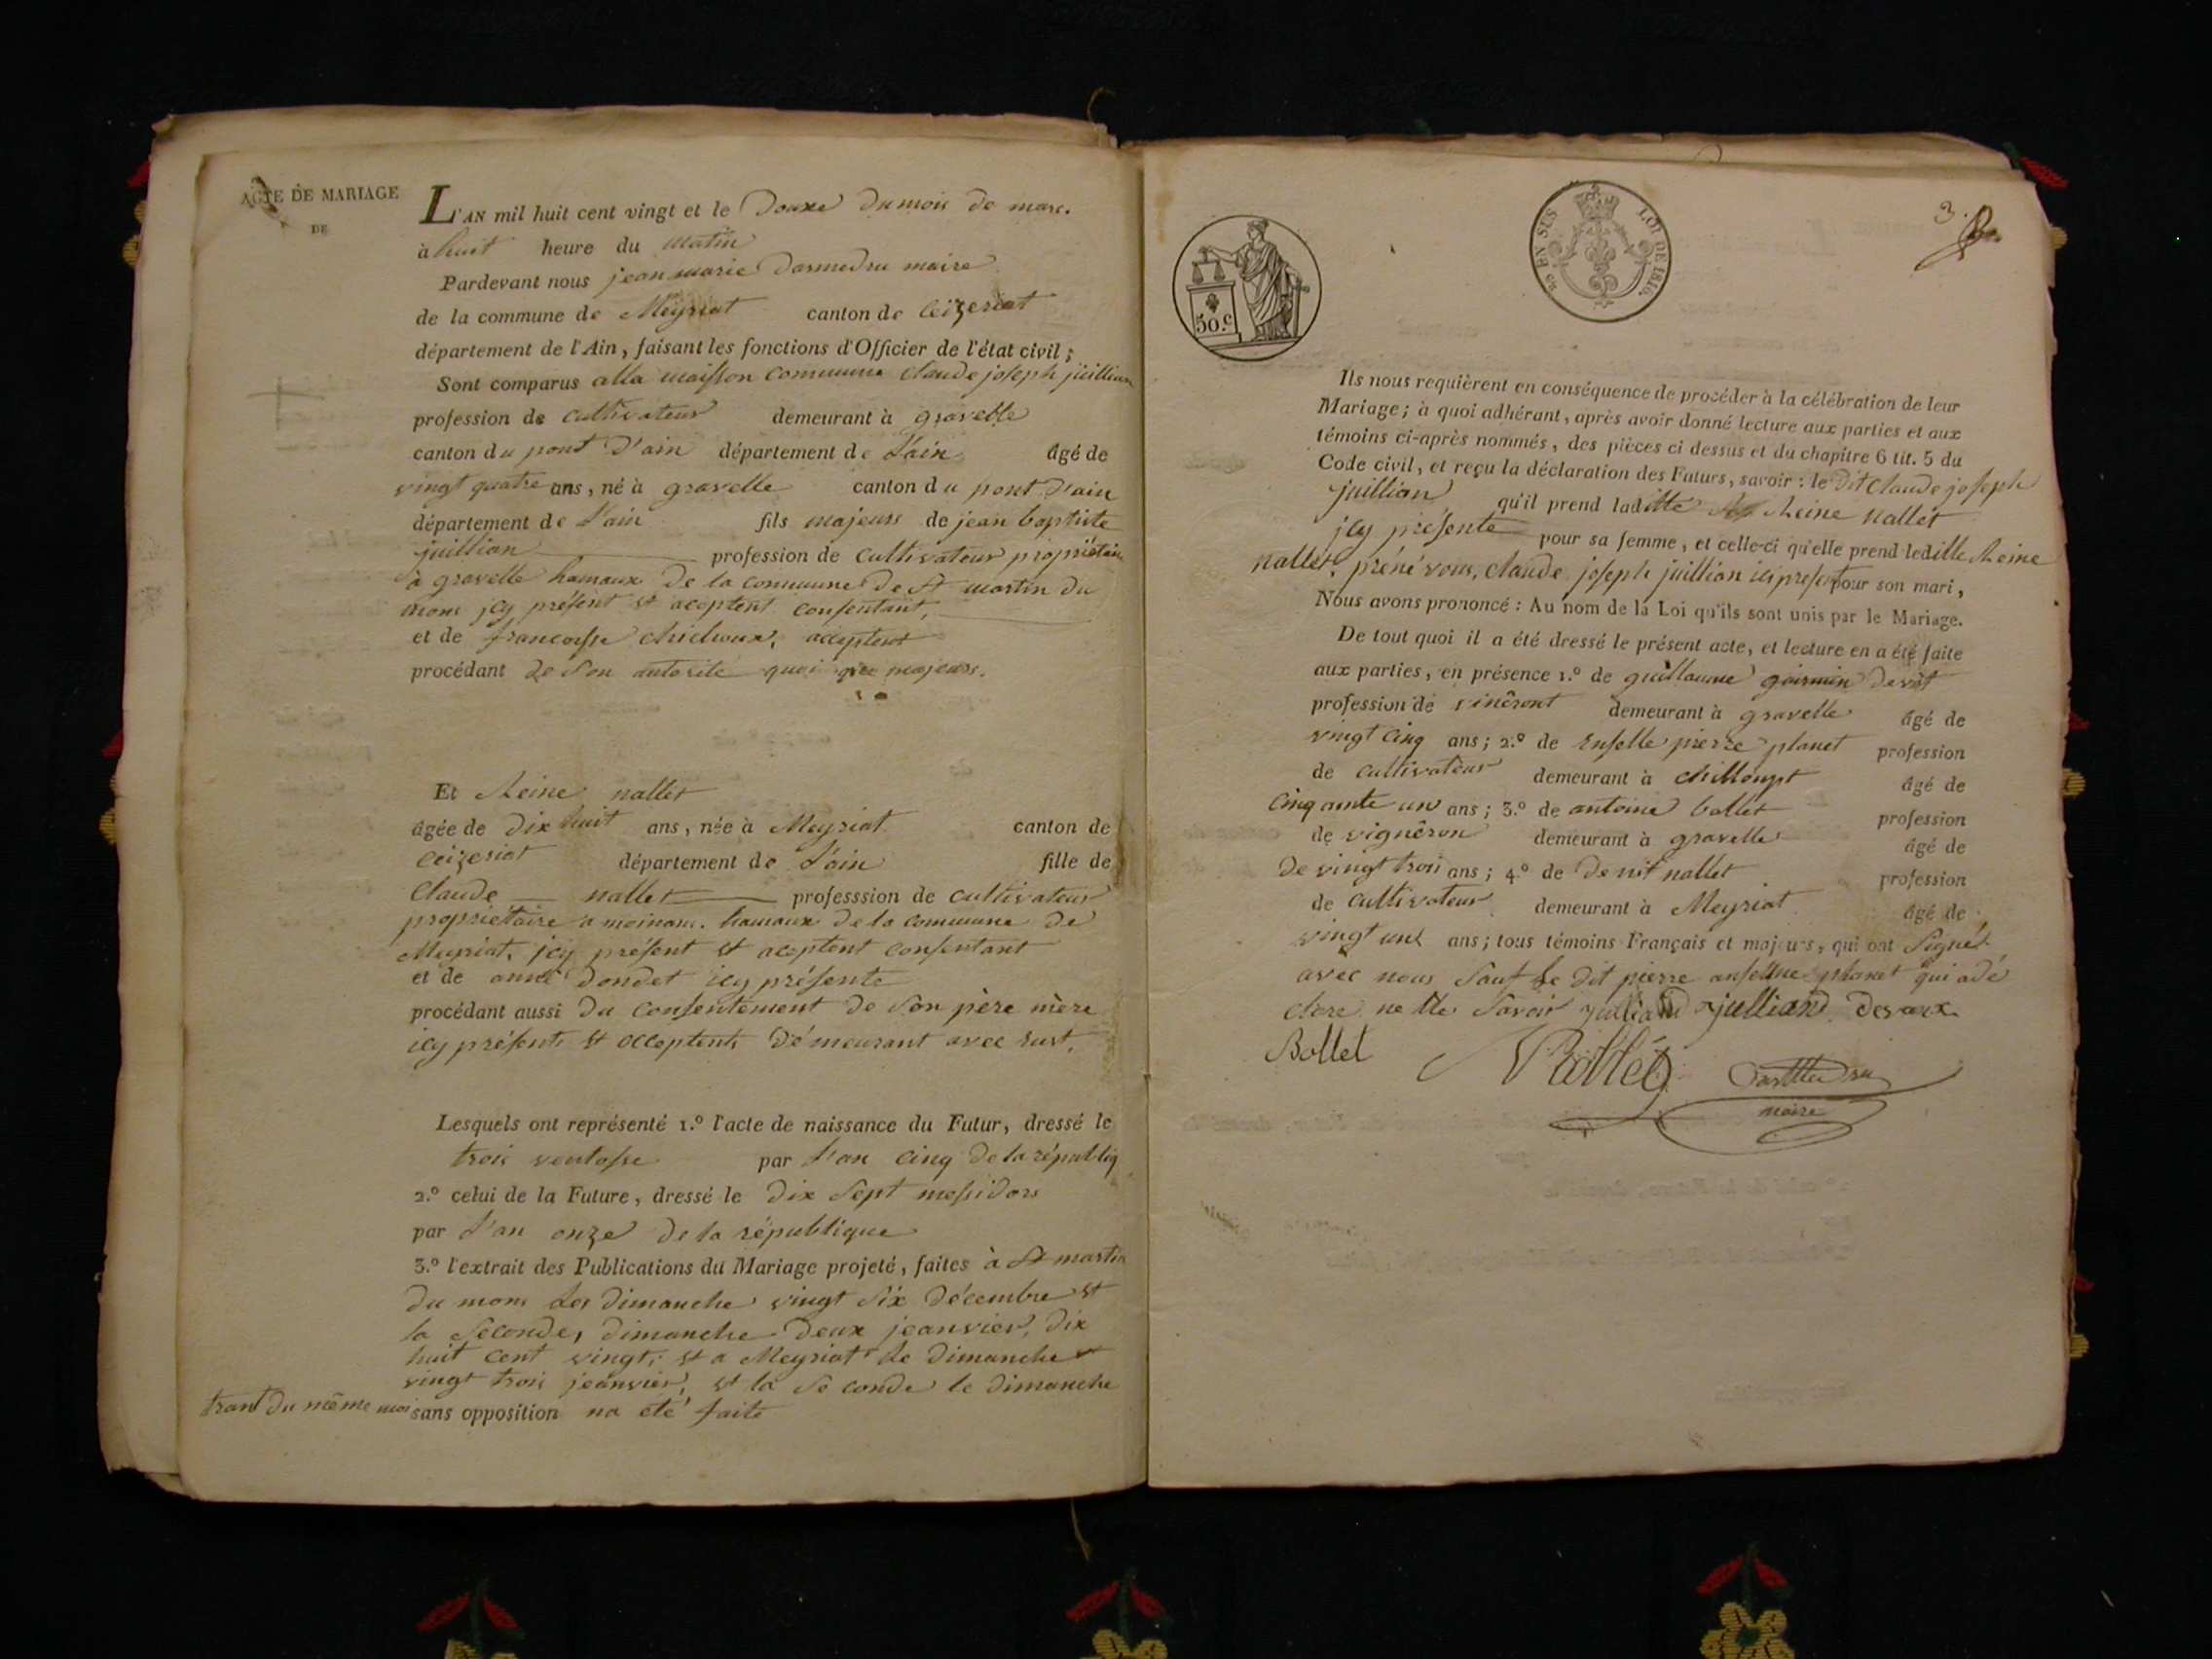 ACTE DE MARIAGE
DE
L'AN mil huit cent vingt et le Douxe du mois de mars.
à huit heure du matin
Pardevant nous jean marie Darmedru maire
de la commune de Meyriat canton de Ceizeriat
département de l'Ain, faisant les fonctions d'Officier de l'état civil;
Sont comparus alla maisson commune Claude joseph juillian
profession de cultivateur demeurant à gravelle
canton du pont D'ain département de L'ain âgé de
vingt quatre ans, né à gravelle canton du pont D'ain
département de L'ain fils majeurs de jean baptiste
juillian profession de cultivateur propriétaire
a gravelle hamaux De la commune De St martin Du
mons jcy présent et aceptent consentant,
et de francoisse chicloux, acceptent
procédant De Son autorité quoi que majeurs.
Et Reine nallet
âgée de Dix huit ans, née à Meyriat canton de
Ceizeriat département de L'ain fille de
Claude nallet professsion de cultivateur
propriétaire a moinans. hamaux De la commune De
Meyriat, jcy présent et aceptent consentant
et de anne Dondet icy présente
procédant aussi Du consentement De Son père mère
icy présents et acceptents Démeurant avec eust.
Lesquels ont représenté 1.º l'acte de naissance du Futur, dressé le
trois ventosse par L'an cinq De la républiq
2.º celui de la Future, dressé le Dix Sept messidors
par L'an onze De la république
3.º l'extrait des Publications du Mariage projeté, faites à St martin
Du mons Les Dimanche vingt Six Décembre et
la Seconde, Dimanche Deux jeanvier, Dix
huit cent vingt; et a Meyriat le Dimanche
vingt trois jeanvier, et la Se conde le Dimanche
trant Du même moi sans opposition na été faite
50.c
EN SUS
LOI DE 1816.
3.
Ils nous requièrent en conséquence de procéder à la célébration de leur
Mariage; à quoi adhérant, après avoir donné lecture aux parties et aux
témoins ci-après nommés, des pièces ci dessus et du chapitre 6 tit. 5 du
Code civil, et reçu la déclaration des Futurs, savoir: le Dit Claude joseph
juillian qu'il prend laditte Reine nallet
jcy présente pour sa femme, et celle-ci qu'elle prend ledille Reine
nallet, préné vous, claude joseph juillian ici present pour son mari,
Nous avons prononcé: Au nom de la Loi qu'ils sont unis par le Mariage.
De tout quoi il a été dressé le présent acte, et lecture en a été faite
aux parties, en présence 1.º de guillaume goirmin Devôt
profession de vinêront demeurant à gravelle âgé de
vingt cinq ans; 2.º de Enselle pierre planet profession
de cultivateur demeurant à chilloupt âgé de
cinq ante un ans; 3.º de antoine bollet profession
de vignêron demeurant à gravelle âgé de
De vingt trois ans; 4.º de Denit nallet profession
de cultivateur demeurant à Meyriat âgé de
vingt un ans; tous témoins Français et majeurs, qui ont Signé
avec nous Sauf Le Dit pierre anselme planet qui adé
clere ne Le Savoir julliand julliand Devaux
Bollet Nallet Darmedru
maire